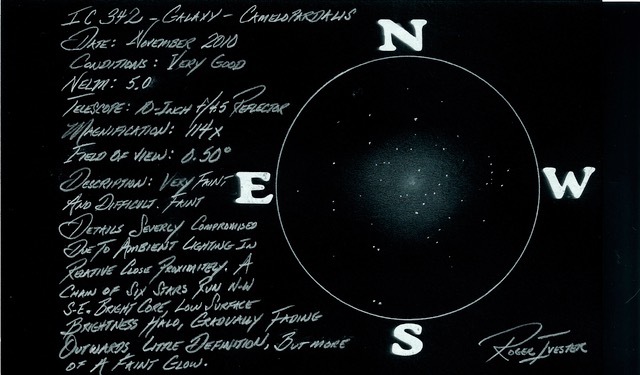 IC 342 - Galaxy - Camelopardalis
Date: November 2010
Conditions: Very Good
NELM: 5.0
Telescope: 10-Inch f/4.5 Reflector
Magnification: 114x
Field of View: 0.50°
Description: Very Faint
And Difficult. Faint
Details Severly Compromised
Due To Ambient Lighting In
Relative Close Proximately. A
Chain of Six Stars Run N-W
S-E. Bright Core, Low Surface
Brightness Halo, Gradually Fading
Outwards. Little Definition, But more
of A Faint Glow.
N
E
W
S
Roger Ivester